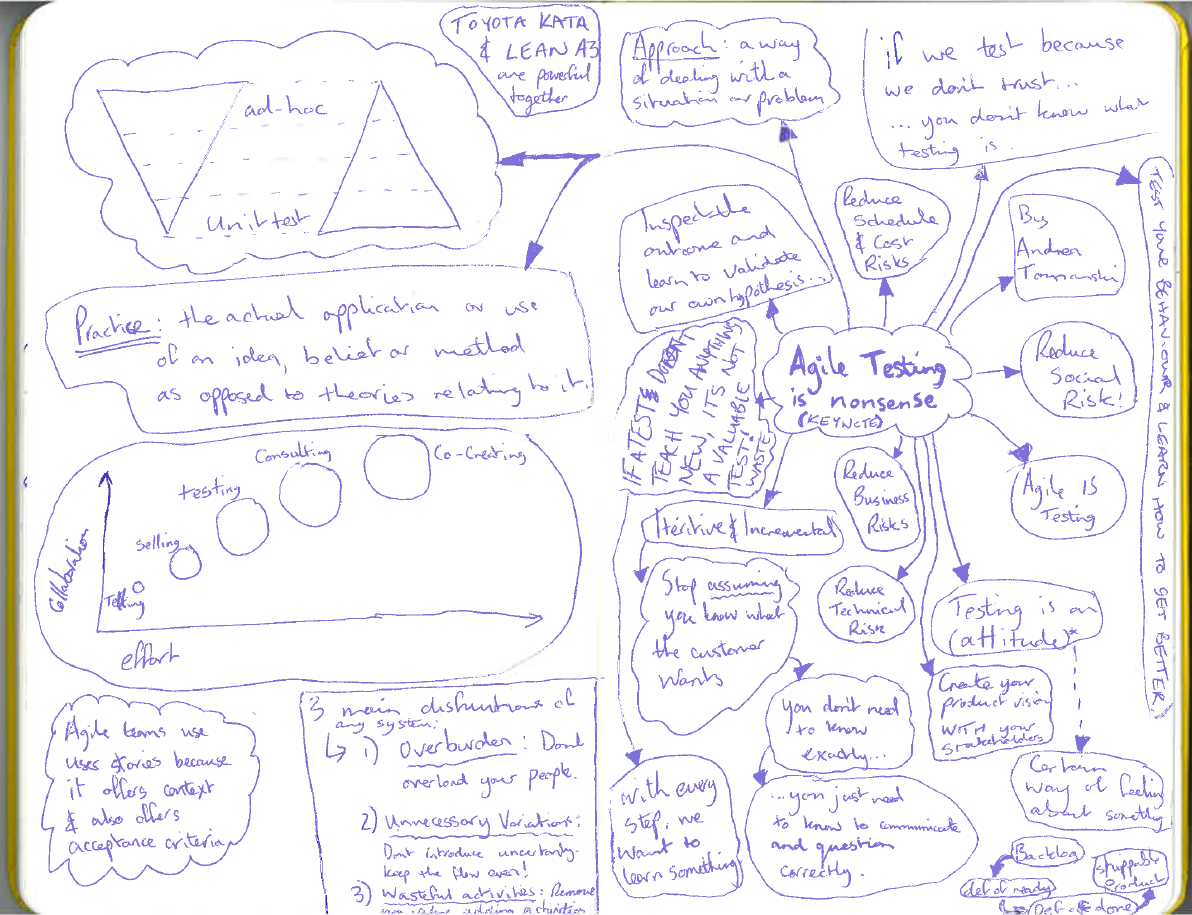 TOYOTA KATA
& LEAN A3
are powerful
together
ad-hoc
Unit test
Practice: the actual application or use
of an idea, belief or method
as opposed to theories relating to it.
Collaboration
effort
Telling
Selling
testing
Consulting
Co-Creating
Agile teams use
uses stories because
it offers context
& also offers
acceptance criteria
3 main distuntions of
any system:
1) Overburden: Dont
overload your people.
2) Unnecessary Variations:
Dont introduce uncertanty.
keep the flow even!
3) Wasteful activities: Remove
non value adding activities
Approach: a way
of dealing with a
situation or problem
if we test because
we don't trust...
...you don't know what
testing is..
Inspect the
outcome and
learn to validate
our own hypothesis...
Reduce
Schedule
& Cost
Risks
By
Andrea
TEST YOUR BEHAVIOUR & LEARN HOW TO GET BETTER
Agile Testing
is nonsense
(KEYNOTE)
Reduce
Social
Risk!
IF A TEST DOESN'T
TEACH YOU ANYTHING
NEW, IT'S NOT
A VALUABLE
TEST!
WASTE
Reduce
Business
Risks
Agile IS
Testing
Iteritive & Incremental
Stop assuming
you know what
the customer
wants
Reduce
Technical
Risk
Testing is an
(attitude)*
Create your
product vision
WITH your
stakeholders
you don't need
to know
exactly...
...you just need
to know to communicate
and question
correctly.
with every
step, we
want to
learn something
Certain
way of feeling
about somethig
Backlog
def of ready
Def of done
shippable
product